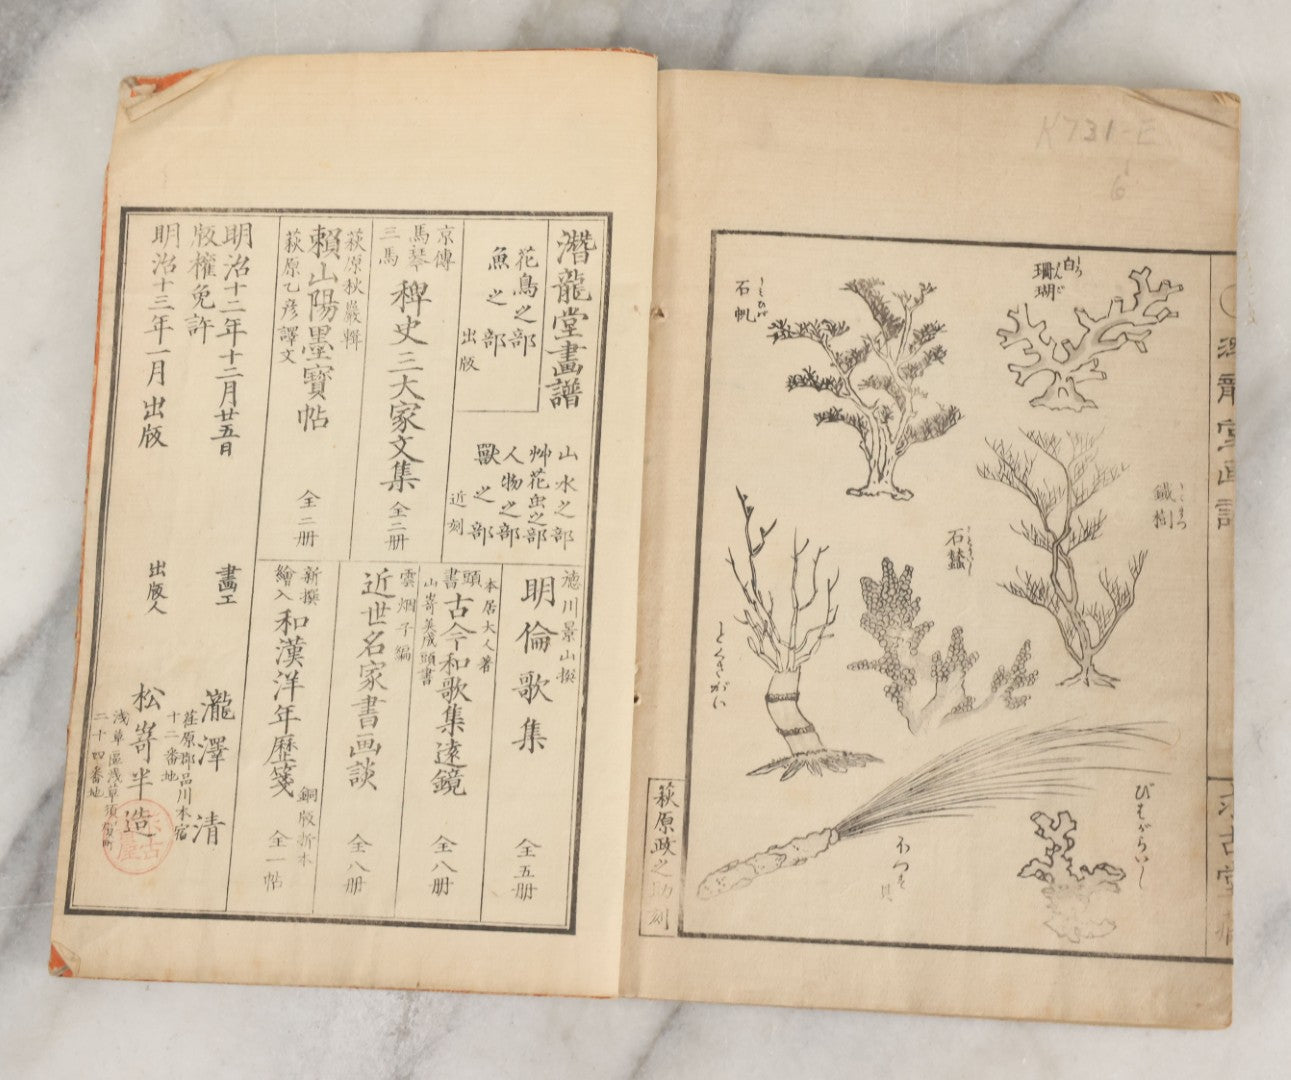 K731-E
6
白
珊瑚
石帆
鐵樹
石蠶
とくさがい
ほつす貝
びはがらいし
萩原政之助刻
潜龍堂画譜
潛龍堂畫譜
花鳥之部
魚之部
出版
山水之部
艸花虫之部
人物之部
獸之部
近刻
京傳
馬琴
三馬
稗史三大家文集
全二册
萩原秋巖輯
賴山陽墨寶帖
萩原乙彦譯文
全二册
德川景山撰
明倫歌集
全五册
本居大人著
頭書
古今和歌集遠鏡
山嵜美成頭書
全八册
雲烟子編
近世名家書画談
全八册
新撰
繪入
和漢洋年歷箋
銅版折本
全一帖
明治十二年十二月廿五日
版權免許
明治十三年一月出版
畫工
瀧澤清
荏原郡品川本宿
十二番地
出版人
松嵜半造
二十四番地